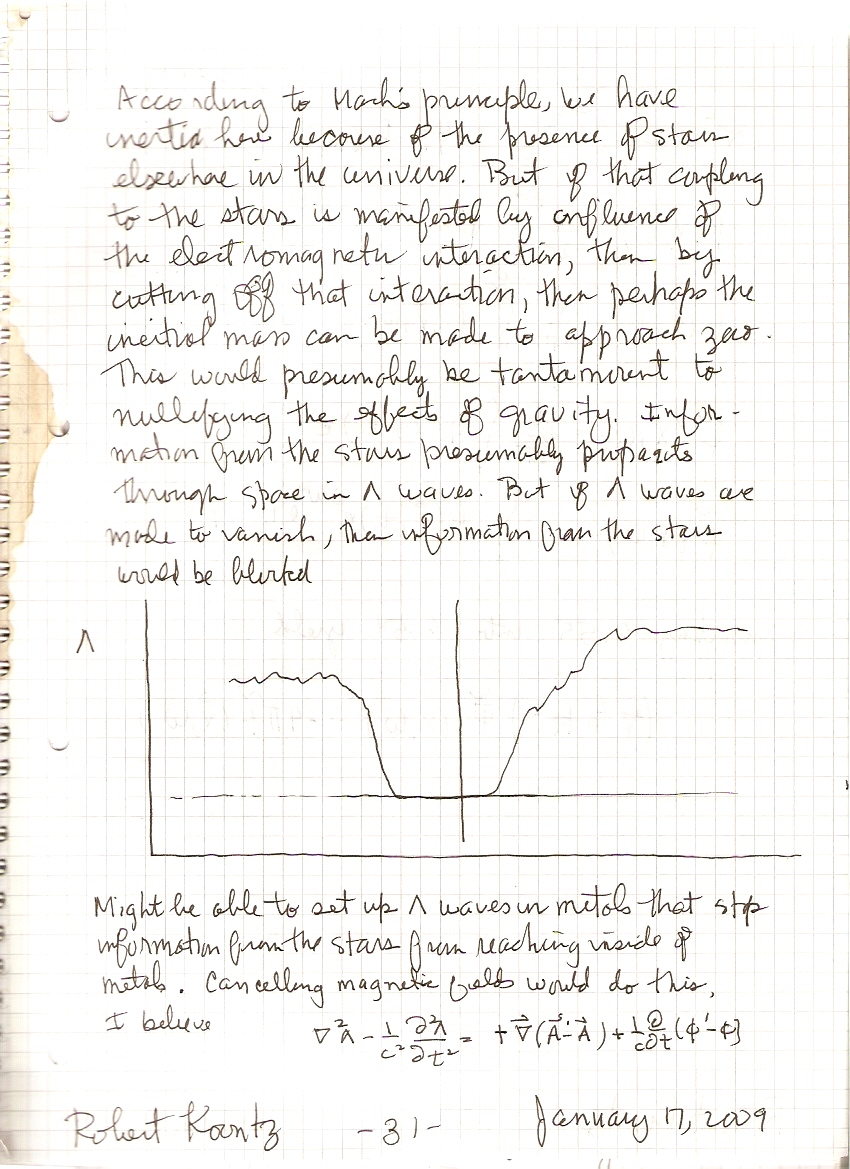 According to Mach's principle, we have
inertia here because of the presence of stars
elsewhere in the universe. But if that coupling
to the stars is manifested by confluence of
the electromagnetic interaction, then by
cutting off that interaction, then perhaps the
inertial mass can be made to approach zero.
This would presumably be tantamount to
nullifying the effects of gravity. Infor-
mation from the stars presumably propagates
through space in Λ waves. But if Λ waves are
made to vanish, then information from the stars
would be blocked
Λ
Might be able to set up Λ waves in metals that stop
information from the stars from reaching inside of
metals. Cancelling magnetic fields would do this,
I believe
∇²Λ - 1/c² ∂²Λ/∂t² = + ∇⃗(A⃗'-A⃗) + 1/c ∂/∂t (ϕ'-ϕ)
Robert Koontz -31- January 17, 2009